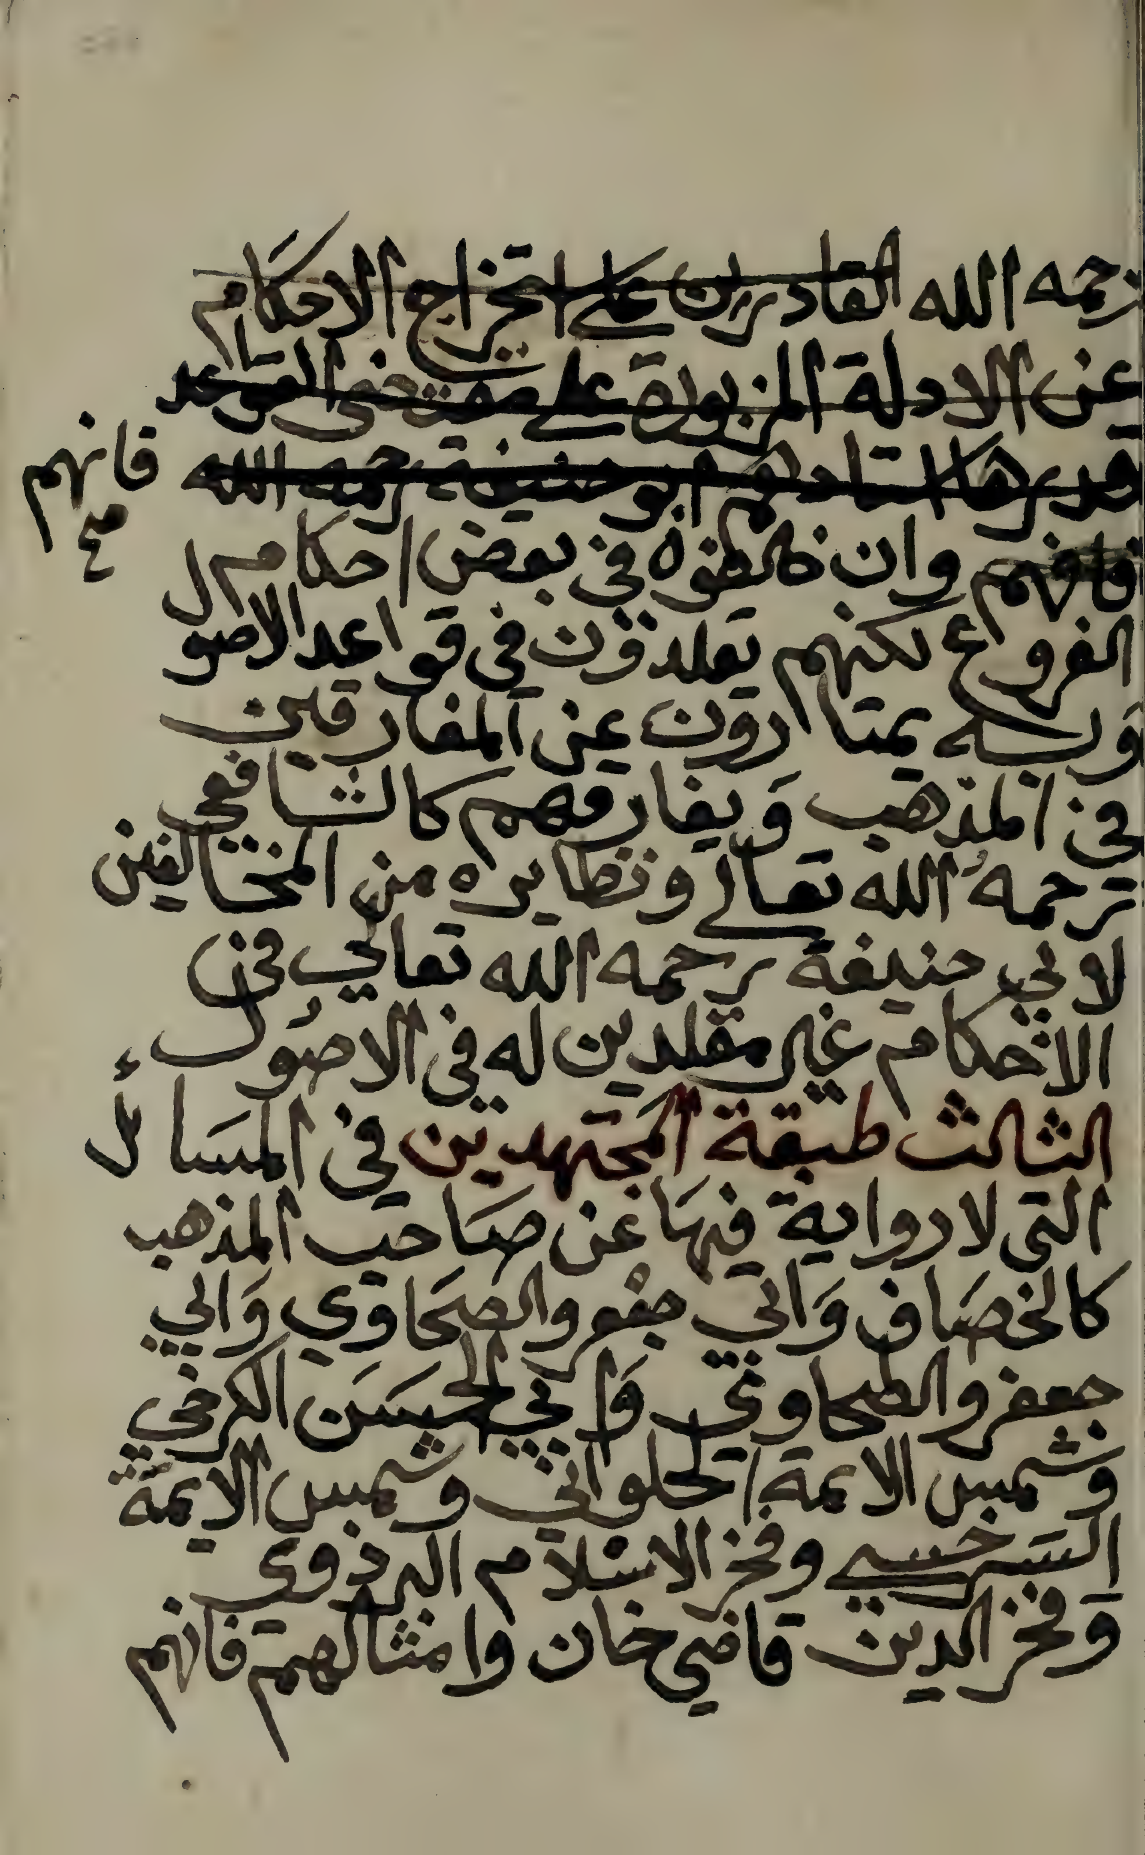 رحمه الله القادرين على استخراج الاحكام
عن الادلة المزبورة على مقتضى القواعد
قدرها استادهم ابو حنيفة رحمه الله
فانهم
صح
وان خالفوه فى بعض احكام
الفروع لكنهم يقلدونه فى قواعد الاصول
وبه يمتازون عن المفارقين
فى المذهب ويفارقهم كالشافعى
رحمه الله تعالى ونظايره من المخالفين
لابي حنيفة رحمه الله تعالي فى
الاحكام غير مقلدين له فى الاصول
الثالث طبقة المجتهدين في المسائل
التى لا رواية فيها عن صاحب المذهب
كالخصاف وابي جعفر والصحاوي وابي
جعفر والطحاوي وابي الحسن الكرخي
وشمس الايمة الحلواني وشمس الايمة
السرخسي وفخر الاسلام البزدوى
وفخر الدين قاضي خان وامثالهم فانهم